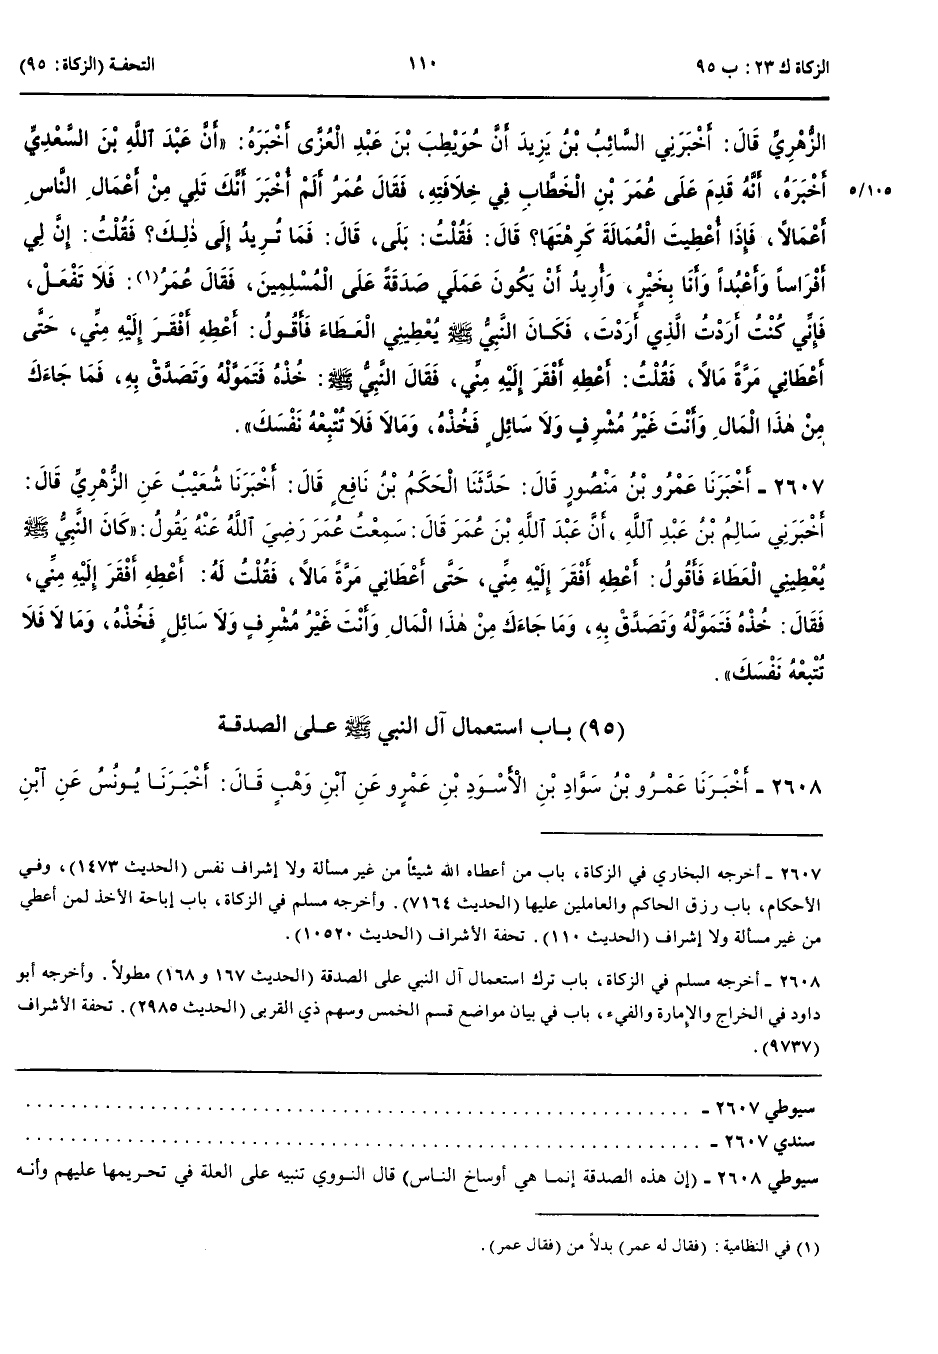 الزكاة ك ٢٣: ب ٩٥ ١١٠ التحفة (الزكاة: ٩٥)
الزُّهْرِيِّ قَالَ: أَخْبَرَنِي السَّائِبُ بْنُ يَزِيدَ أَنَّ حُوَيْطِبَ بْنَ عَبْدِ الْعُزَّى أَخْبَرَهُ: «أَنَّ عَبْدَ ٱللَّهِ بْنَ السَّعْدِيِّ
٥/١٠٥ أَخْبَرَهُ، أَنَّهُ قَدِمَ عَلَى عُمَرَ بْنِ الْخَطَّابِ فِي خِلَافَتِهِ، فَقَالَ عُمَرُ أَلَمْ أُخْبَرَ أَنَّكَ تَلِي مِنْ أَعْمَالِ النَّاسِ
أَعْمَالاً، فَإِذَا أُعْطِيتَ الْعُمَالَةَ كَرِهْتَهَا؟ قَالَ: فَقُلْتُ: بَلَى، قَالَ: فَمَا تُرِيدُ إِلَى ذٰلِكَ؟ فَقُلْتُ: إِنَّ لِي
أَفْرَاساً وَأَعْبُداً وَأَنَا بِخَيْرٍ، وَأُرِيدُ أَنْ يَكُونَ عَمَلِي صَدَقَةً عَلَى الْمُسْلِمِينَ، فَقَالَ عُمَرُ(١): فَلَا تَفْعَلْ،
فَإِنِّي كُنْتُ أَرَدْتُ الَّذِي أَرَدْتَ، فَكَانَ النَّبِيُّ ﷺ يُعْطِينِي الْعَطَاءَ فَأَقُولُ: أَعْطِهِ أَفْقَرَ إِلَيْهِ مِنِّي، حَتَّى
أَعْطَانِي مَرَّةً مَالاً، فَقُلْتُ: أَعْطِهِ أَفْقَرَ إِلَيْهِ مِنِّي، فَقَالَ النَّبِيُّ ﷺ: خُذْهُ فَتَمَوَّلْهُ وَتَصَدَّقْ بِهِ، فَمَا جَاءَكَ
مِنْ هٰذَا الْمَالِ وَأَنْتَ غَيْرُ مُشْرِفٍ وَلَا سَائِلٍ فَخُذْهُ، وَمَالَا فَلَا تُتْبِعْهُ نَفْسَكَ».
٢٦٠٧ ـ أَخْبَرَنَا عَمْرُو بْنُ مَنْصُورٍ قَالَ: حَدَّثَنَا الْحَكَمُ بْنُ نَافِعٍ قَالَ: أَخْبَرَنَا شُعَيْبٌ عَنِ الزُّهْرِيِّ قَالَ:
أَخْبَرَنِي سَالِمُ بْنُ عَبْدِ ٱللَّهِ، أَنَّ عَبْدَ ٱللَّهِ بْنَ عُمَرَ قَالَ: سَمِعْتُ عُمَرَ رَضِيَ ٱللَّهُ عَنْهُ يَقُولُ: «كَانَ النَّبِيُّ ﷺ
يُعْطِينِي الْعَطَاءَ فَأَقُولُ: أَعْطِهِ أَفْقَرَ إِلَيْهِ مِنِّي، حَتَّى أَعْطَانِي مَرَّةً مَالاً، فَقُلْتُ لَهُ: أَعْطِهِ أَفْقَرَ إِلَيْهِ مِنِّي،
فَقَالَ: خُذْهُ فَتَمَوَّلْهُ وَتَصَدَّقْ بِهِ، وَمَا جَاءَكَ مِنْ هٰذَا الْمَالِ وَأَنْتَ غَيْرُ مُشْرِفٍ وَلَا سَائِلٍ فَخُذْهُ، وَمَا لَا فَلَا
تُتْبِعْهُ نَفْسَكَ».
(٩٥) باب استعمال آل النبي ﷺ على الصدقة
٢٦٠٨ ـ أَخْبَرَنَا عَمْرُو بْنُ سَوَّادِ بْنِ الْأَسْوَدِ بْنِ عَمْرٍو عَنِ ٱبْنِ وَهْبٍ قَالَ: أَخْبَرَنَا يُونُسُ عَنِ ٱبْنِ
٢٦٠٧ ـ أخرجه البخاري في الزكاة، باب من أعطاه الله شيئاً من غير مسألة ولا إشراف نفس (الحديث ١٤٧٣)، وفي
الأحكام، باب رزق الحاكم والعاملين عليها (الحديث ٧١٦٤). وأخرجه مسلم في الزكاة، باب إباحة الأخذ لمن أعطي
من غير مسألة ولا إشراف (الحديث ١١٠). تحفة الأشراف (الحديث ١٠٥٢٠).
٢٦٠٨ ـ أخرجه مسلم في الزكاة، باب ترك استعمال آل النبي على الصدقة (الحديث ١٦٧ و ١٦٨) مطولاً. وأخرجه أبو
داود في الخراج والإمارة والفيء، باب في بيان مواضع قسم الخمس وسهم ذي القربى (الحديث ٢٩٨٥). تحفة الأشراف
(٩٧٣٧).
سيوطي ٢٦٠٧ ـ . . . . . . . . . . . . . . . . . . . . . . . . . . . . . .
سندي ٢٦٠٧ ـ . . . . . . . . . . . . . . . . . . . . . . . . . . . . . .
سيوطي ٢٦٠٨ ـ (إن هذه الصدقة إنما هي أوساخ الناس) قال النووي تنبيه على العلة في تحريمها عليهم وأنه
(١) في النظامية: (فقال له عمر) بدلاً من (فقال عمر).